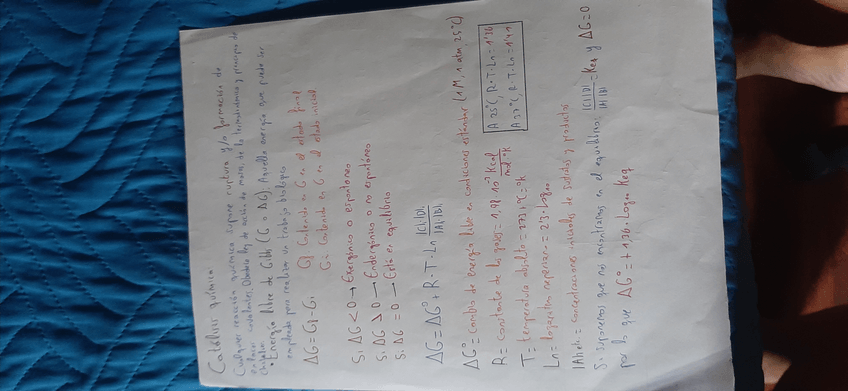 Catálisis química:
Cualquier reacción química supone ruptura y/o formación de
enlaces covalentes. Obedece ley de acción de masas, de la termodinámica y principio de
• Energía libre de Gibbs (G o ΔG): Aquella energía que puede ser
empleada para realizar un trabajo biológico
ΔG = Gf - Gi
Gf: Contenido en G en el estado final
Gi: Contenido en G en el estado inicial
Si ΔG < 0 → Exergónico o espontáneo
Si ΔG > 0 → Endergónico o no espontáneo
Si ΔG = 0 → Está en equilibrio
ΔG = ΔG° + R · T · Ln |C||D| / |A||B|
ΔG° = cambio de energía libre en condiciones estándar (1M, 1 atm, 25°C)
R = constante de los gases = 1,98 · 10⁻³ Kcal / mol · °K
A 25°C, R·T·Ln = 1'36
A 37°C, R·T·Ln = 1'41
T = temperatura absoluta = 273 + °C = °K
Ln = logaritmo neperiano = 2,3 · log₁₀
= concentraciones iniciales de sustratos y productos
Si suponemos que nos encontramos en el equilibrio: |C||D| / |A||B| = Keq y ΔG = 0
por lo que ΔG° = + 1,36 · Log₁₀ Keq